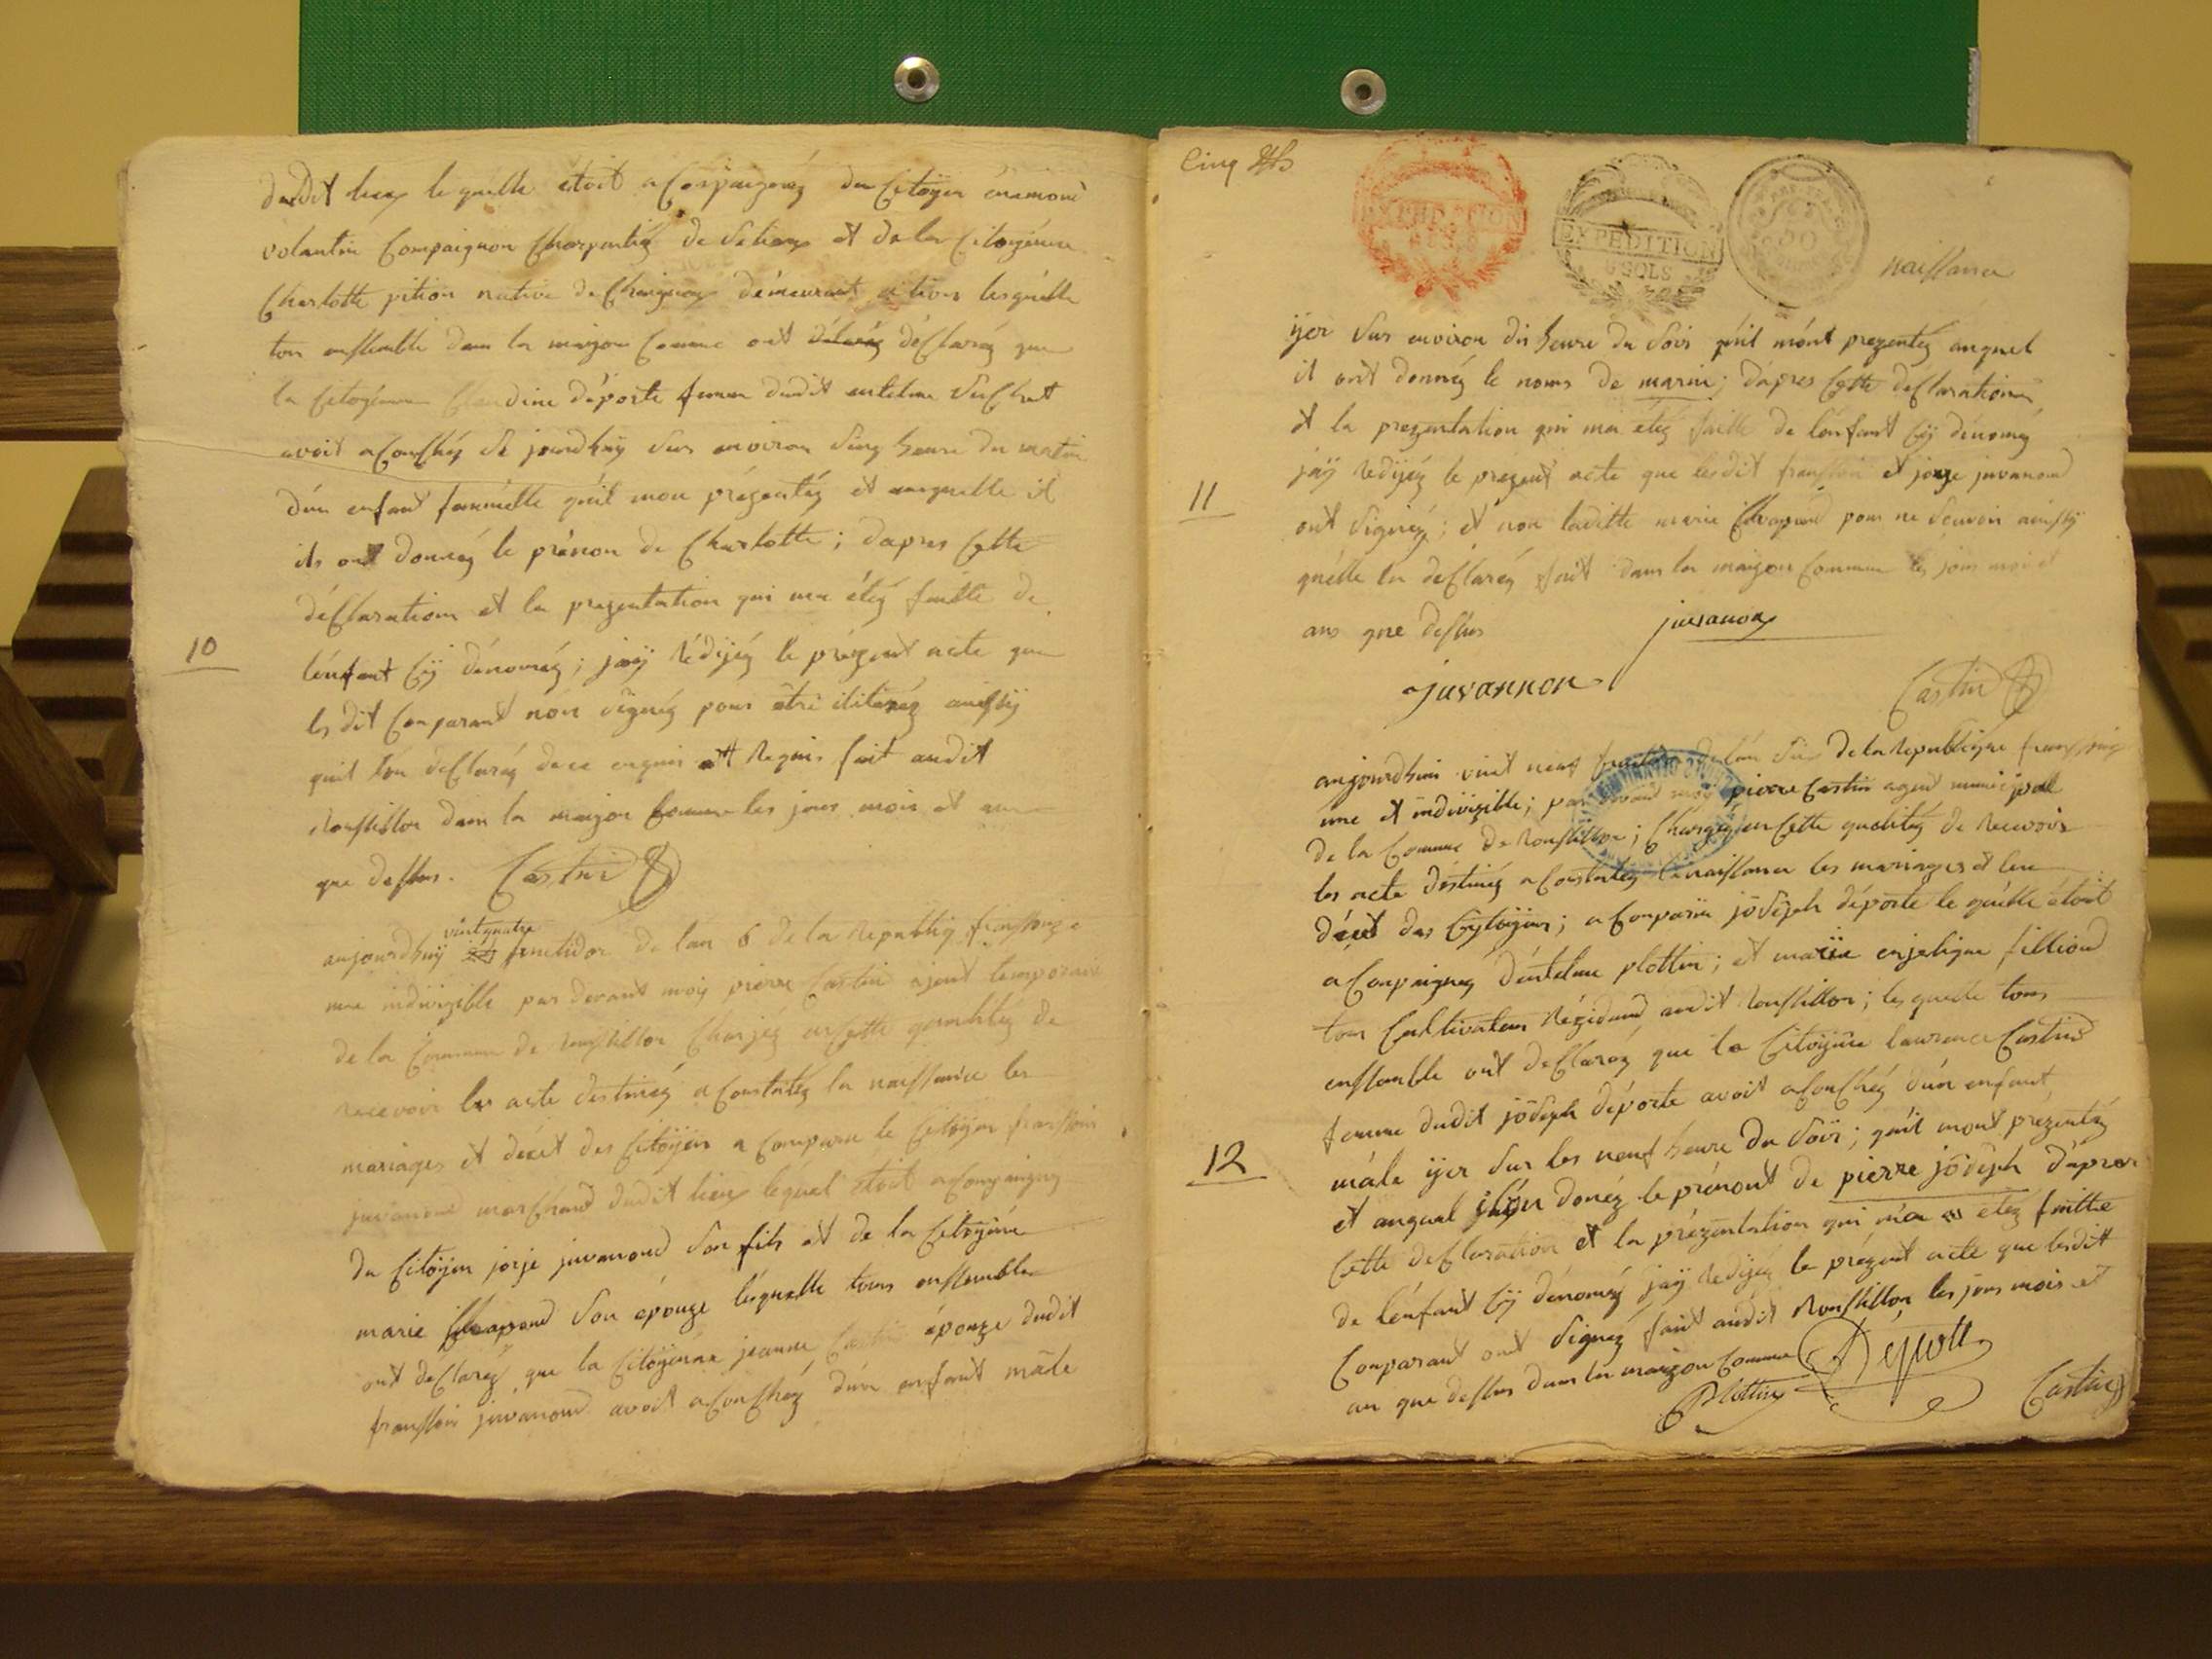 dudit lieux le quelle étoit acompaignéz du Citoÿen
volantin Compaignon Charpentiéz de et de la Citoÿenne
Charlotte pition native de demeurant lesquelle
tous ensemble dans la maizon Comune ont déclaréz que
la Citoÿenne Claudine déporte femme dudit entelme
avoit acouchéz Se jourdhuÿ Sur environ Sinq heure du matin
d'un enfant fummelle quil mon prézentéz et auquelle il
ils ont donnéz le prénon de Charlotte ; dapres Cette
déClaration et la prezentation qui ma étéz faitte de
10
lénfant Cÿ dénoméz ; jaÿ Rédijéz le prézent acte que
les dit Comparant nón Signéz pour être ilitéréz ainssÿ
quil lon deClaréz dece enquis et Requis fait audit
Roussillon dans la maizon Comune les jour mois et an
que dessus. Castin
vint quatre
aujourdhuÿ fructidor de lan 6 de la Republiq franssoize
une indivizible par devant moÿ pierre Castin ajent temporaire
de la Commune de Roussillon Charjéz en Cette qualitéz de
Recevoir les acte destinéz a Constatéz la naissance les
mariages et décet des Citoÿen a Comparu le Citoÿen franssois
juvanond marChand dudit lieux lequel étoit aCompaignéz
du Citoÿen jorje juvanond Son fils et de la Citoÿene
marie Son épouze lesquelle tous enssemble
ont déClaréz que la Citoÿenne jeanne épouze dudit
franssois juvanond avoit aConChéz d'un enfant mâle
Cinq
EXPEDITION
EXPEDITION
SOLS
50
naissance
ÿer Sur environ dix heure du Soir quil mónt prezentéz auquel
il ont donnéz le noms de marin ; dapres Cette deClaration
et la prezentation qui ma étéz faitte de lénfant Cÿ dénoméz
jaÿ Redijéz le prézent acte que lesdit franssois et jorje juvanond
11
ont Signéz ; et non laditte marie pour ne Sçavoir ainssÿ
quélle la deClaréz fait dans la maizon Commune les jour mois et
ans que dessus juvanon
juvannon
Castin
aujourdhui vint neuf fructidor de lan Six de la Republique franssoize
une et indivizible ; par devant moÿ pierre Castin agent municipal
de la Comune de Roussillon ; Chargéz en Cette qualitéz de Recevoir
les acte déstinéz a Constatéz la naissance les mariages et leur
décet des Cytoÿen ; a Comparu jôseph déporte le quélle étoit
aCompaignéz déntelme plottin ; et mariie enjelique filliond
tous Cultivateur Rézidand audit Roussillon ; les quelle tous
enssemble ont deClaréz que la Citoÿene laurence Castin
femme dudit jôseph déporte avoit aConChéz dún enfant
12
mâle ÿer Sur les neuf heure du Soir ; quil mont prézentéz
et auquel ilon donéz le prénont de pierre jôseph dâpres
Cette deClaration et la prézentation qui m'a etéz faitte
de lénfant Cÿ dénoméz jaÿ Redijéz le prézent acte que lesdit
Comparant ont Signéz fait audit Roussillon les jour mois et
an que dessus dans la maizon Comune Deporte
Plottin Castin